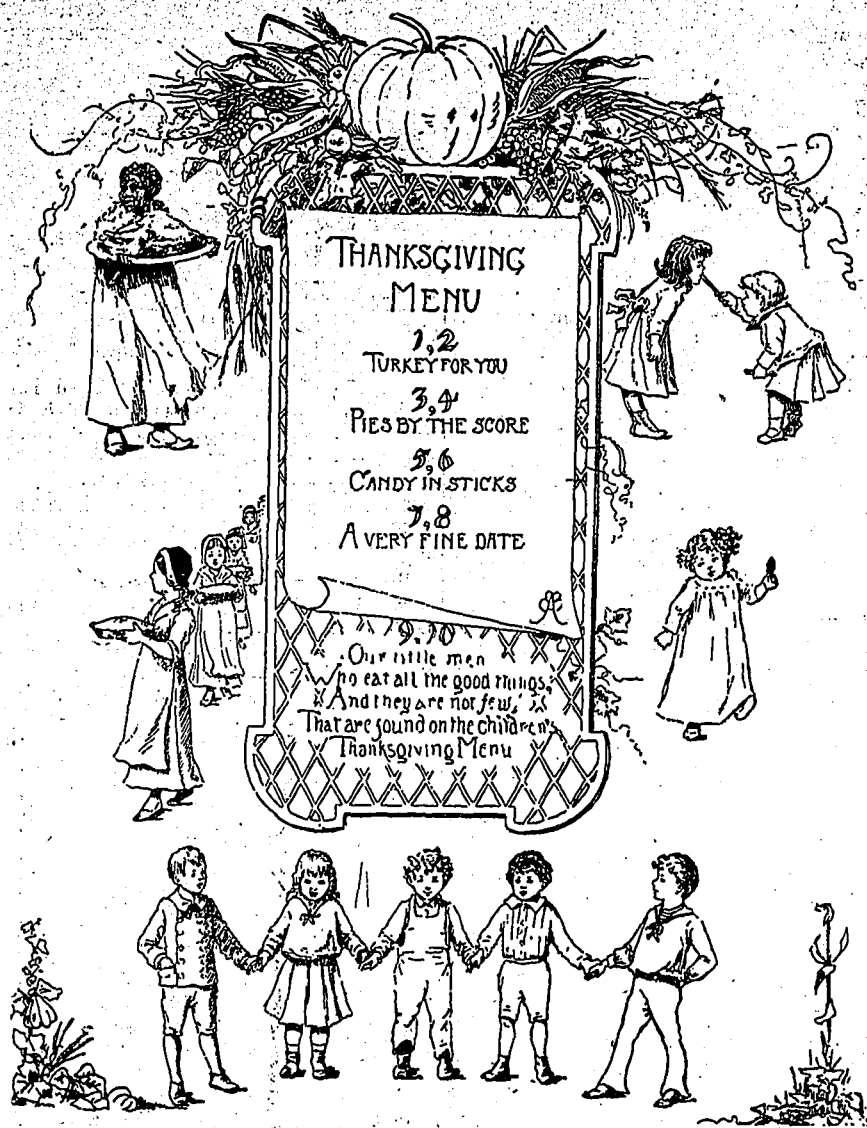 THANKSGIVING
MENU
1,2
TURKEY FOR YOU
3,4
PIES BY THE SCORE
5,6
CANDY IN STICKS
7,8
A VERY FINE DATE
9,10
Our little men
Who eat all the good things,
And they are not few,
That are found on the children's
Thanksgiving Menu